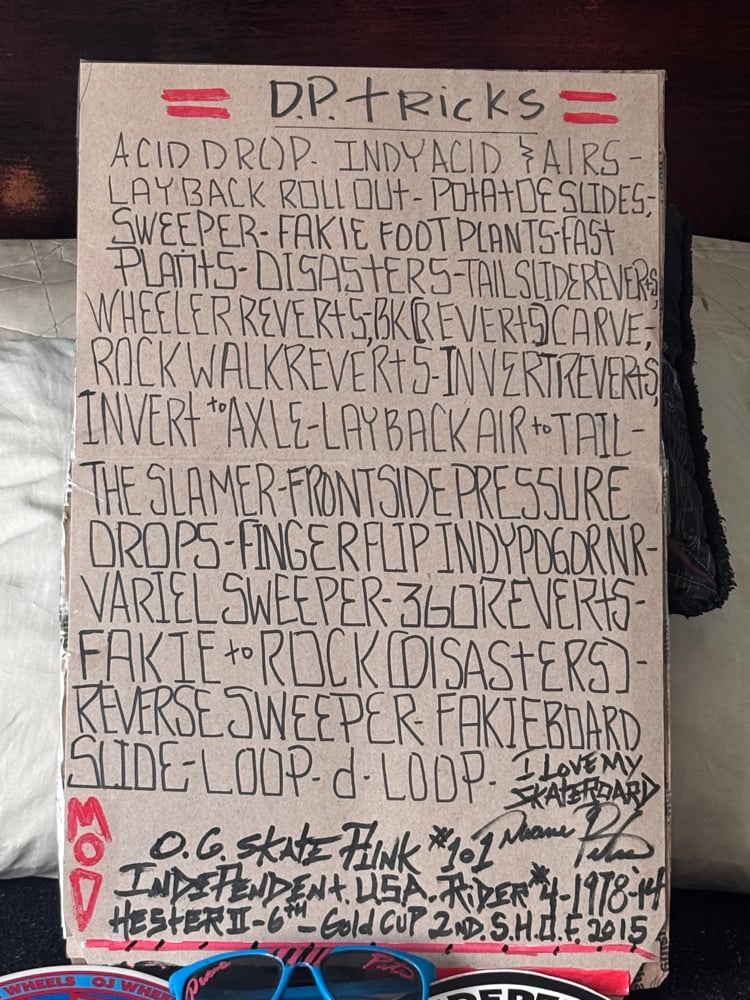 = D.P. tRicKS =
ACID DROP- INDY ACID & AIRS-
LAYBACK ROLL OUt- POtAtOE SLIDES,
SWEEPER- FAKIE FOOT PLANTS-FAST
PLANtS- DISAStERS-TAIL SLIDE REVERtS,
WHEELER REVERtS,BK(REVERtS)CARVE,
ROCK WALK REVERtS-INVERT REVERtS,
INVERt to AXLE-LAYBACK AIR to TAIL-
THE SLAMER-FRONTSIDE PRESSURE
DROPS-FINGER FLIP INDY POGO RNR-
VARIEL SWEEPER-360 REVERtS-
FAKIE to ROCK (DISAStERS)-
REVERSE SWEEPER- FAKIE BOARD
SLIDE-LOOP-d-LOOP-
I LOVE MY
SKATEBOARD
MOD
O.G. SKATE PUNK #101 Duane Peters
INDEPENDENt. USA. RIDER #4-1978-14
HESTER II-6TH-GOLD CUP 2ND. S.H.O.F. 2015
WHEELS OJ WHEE